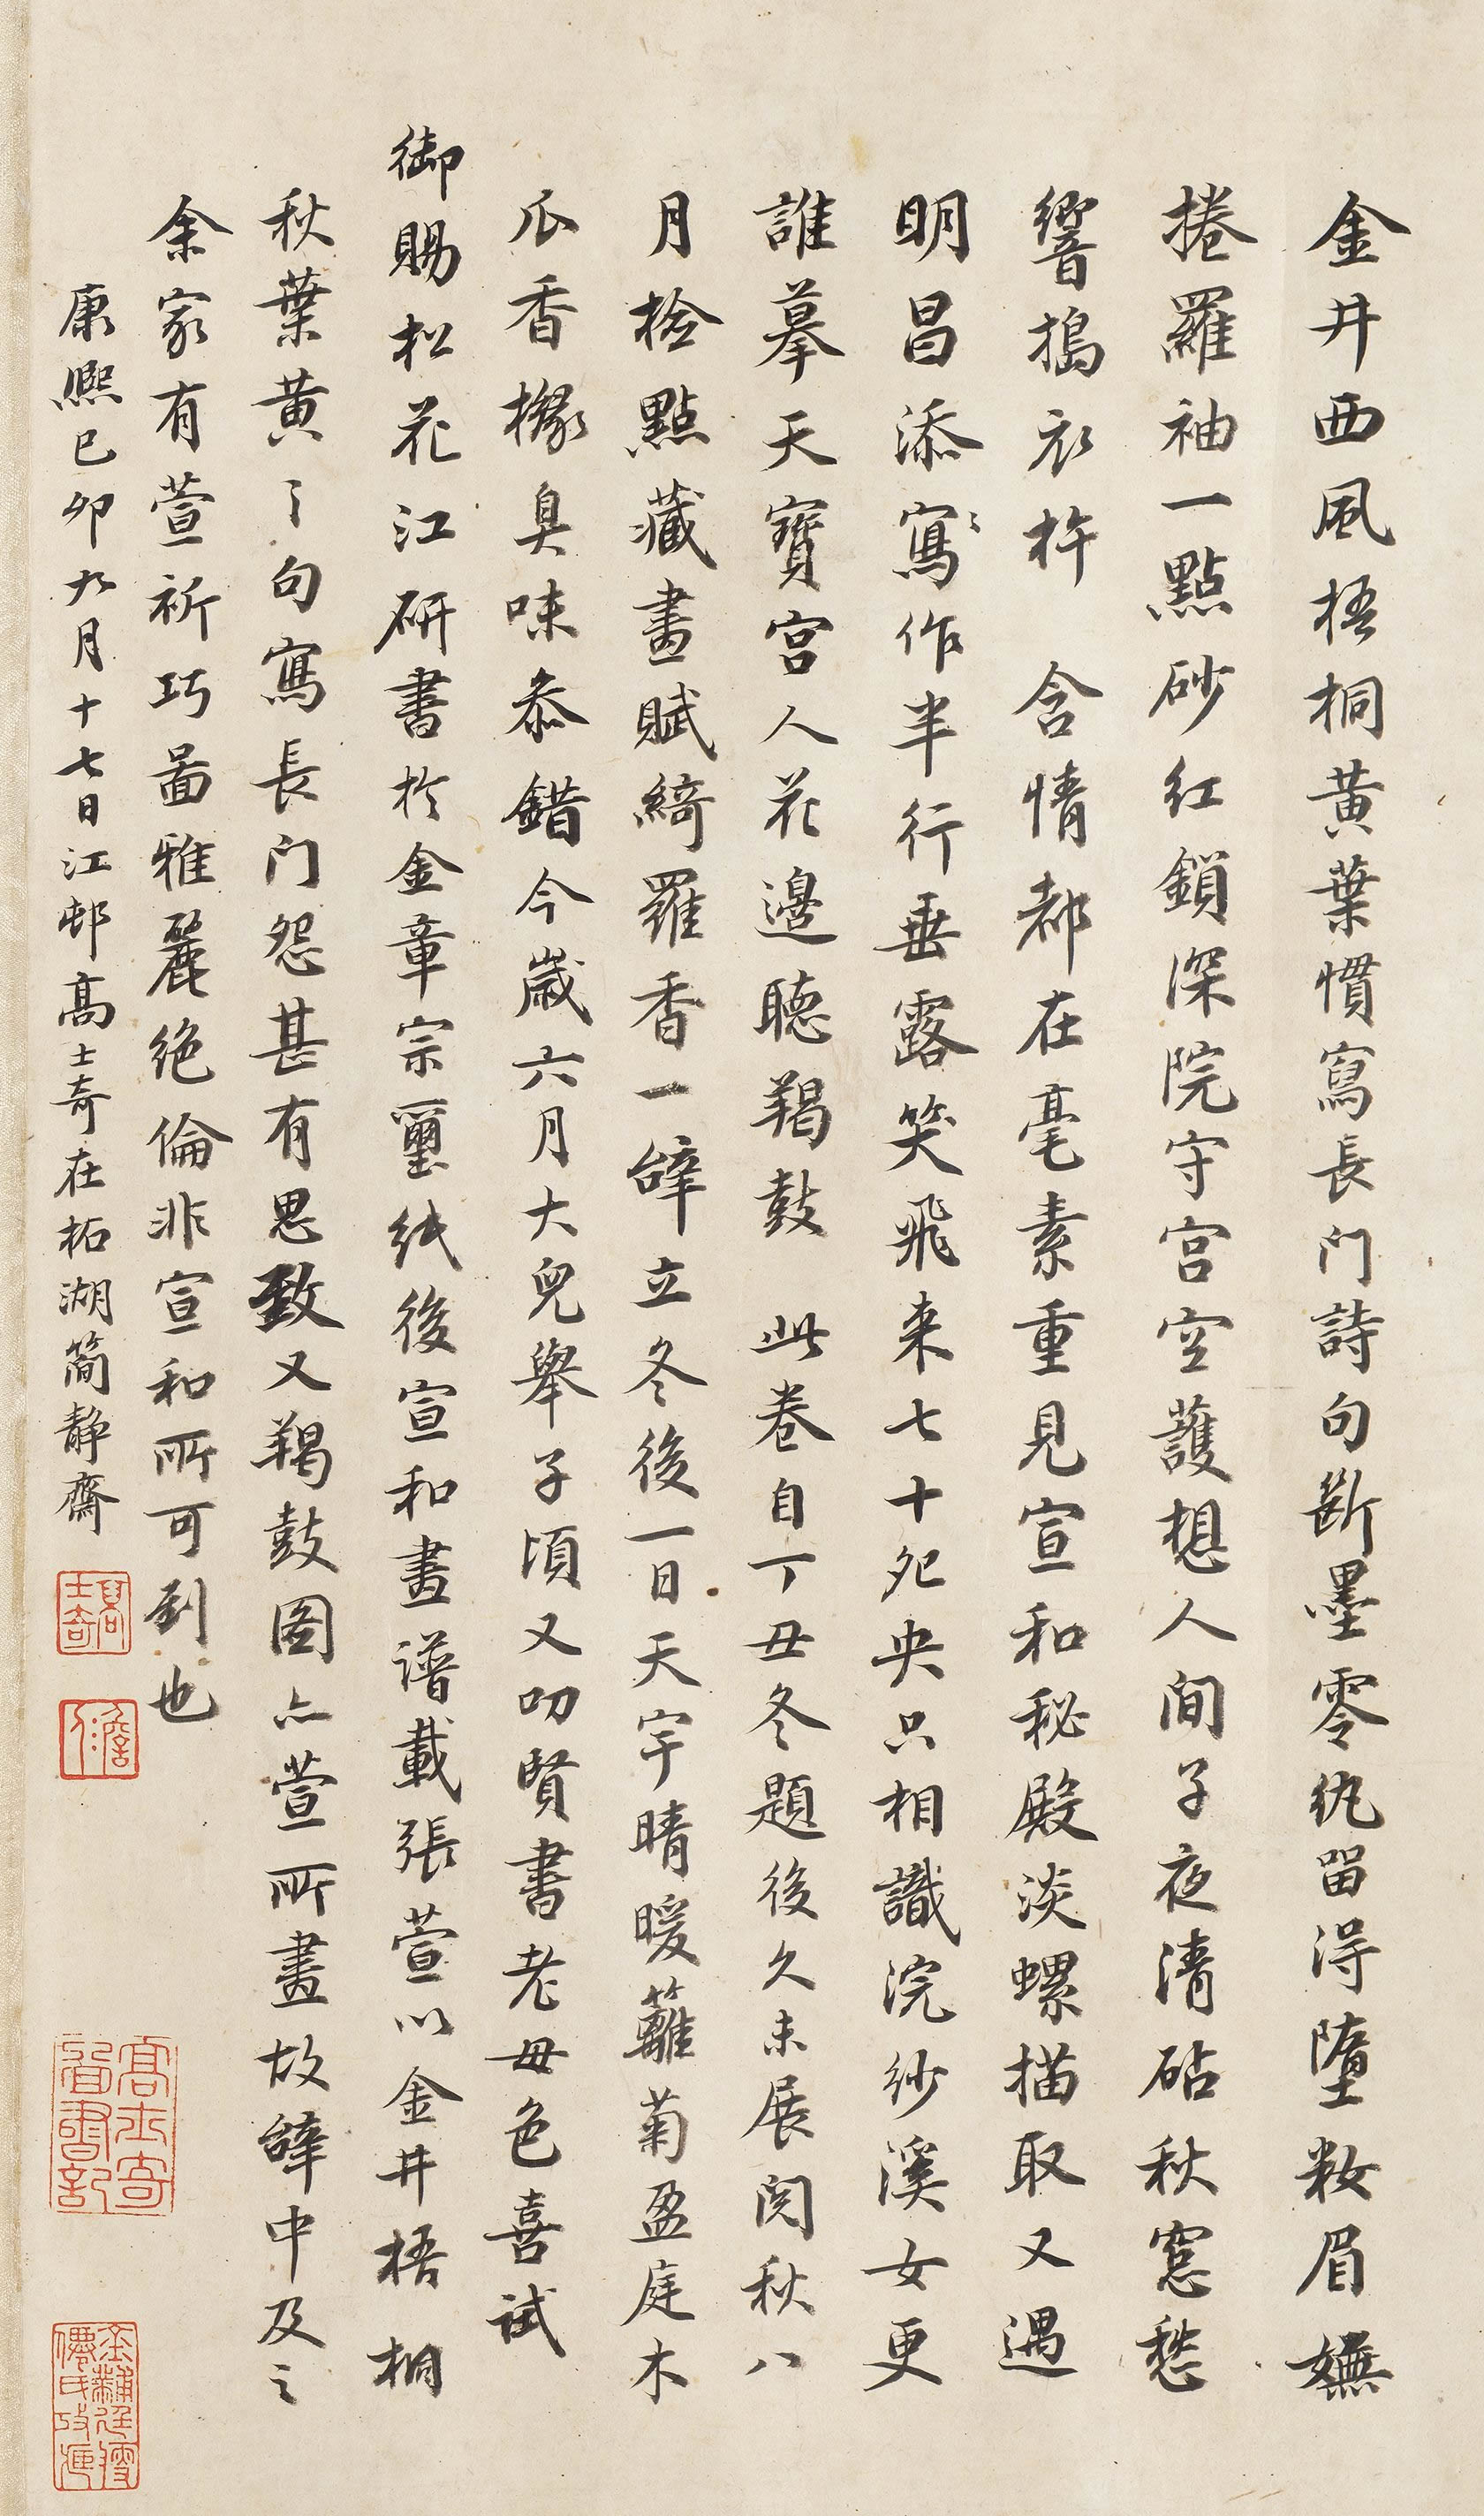 金井西風梧桐黃葉慣寫長门詩句斷墨零紈畱淂墮粧眉嫵
捲羅袖一點砂红鎖深院守宫空護想人间子夜清砧秋窓愁
響搗衣杵　含情都在毫素重見宣和秘殿淡螺描取又遇
明昌添寫作半行垂露笑飛来七十夗央只相識浣紗溪女更
誰摹天寶宮人花邊聽羯鼓　此卷自丁丑冬題後久未展閲秋八
月檢點藏畫賦綺羅香一辭立冬後一日天宇晴暖籬菊盈庭木
瓜香櫞臭味叅錯今歲六月大兒舉子頃又叨賢書老母色喜試
御賜松花江研書於金章宗璽纸後宣和畫譜載張萱以金井梧桐
秋葉黄之句寫長门怨甚有思致又羯鼓图亦萱所畫故辭中及之
余家有萱祈巧圖雅麗绝倫非宣和所可到也
康熙己卯九月十七日江邨高士奇在柘湖简静齋
高士奇
澹人
高士奇圖書記